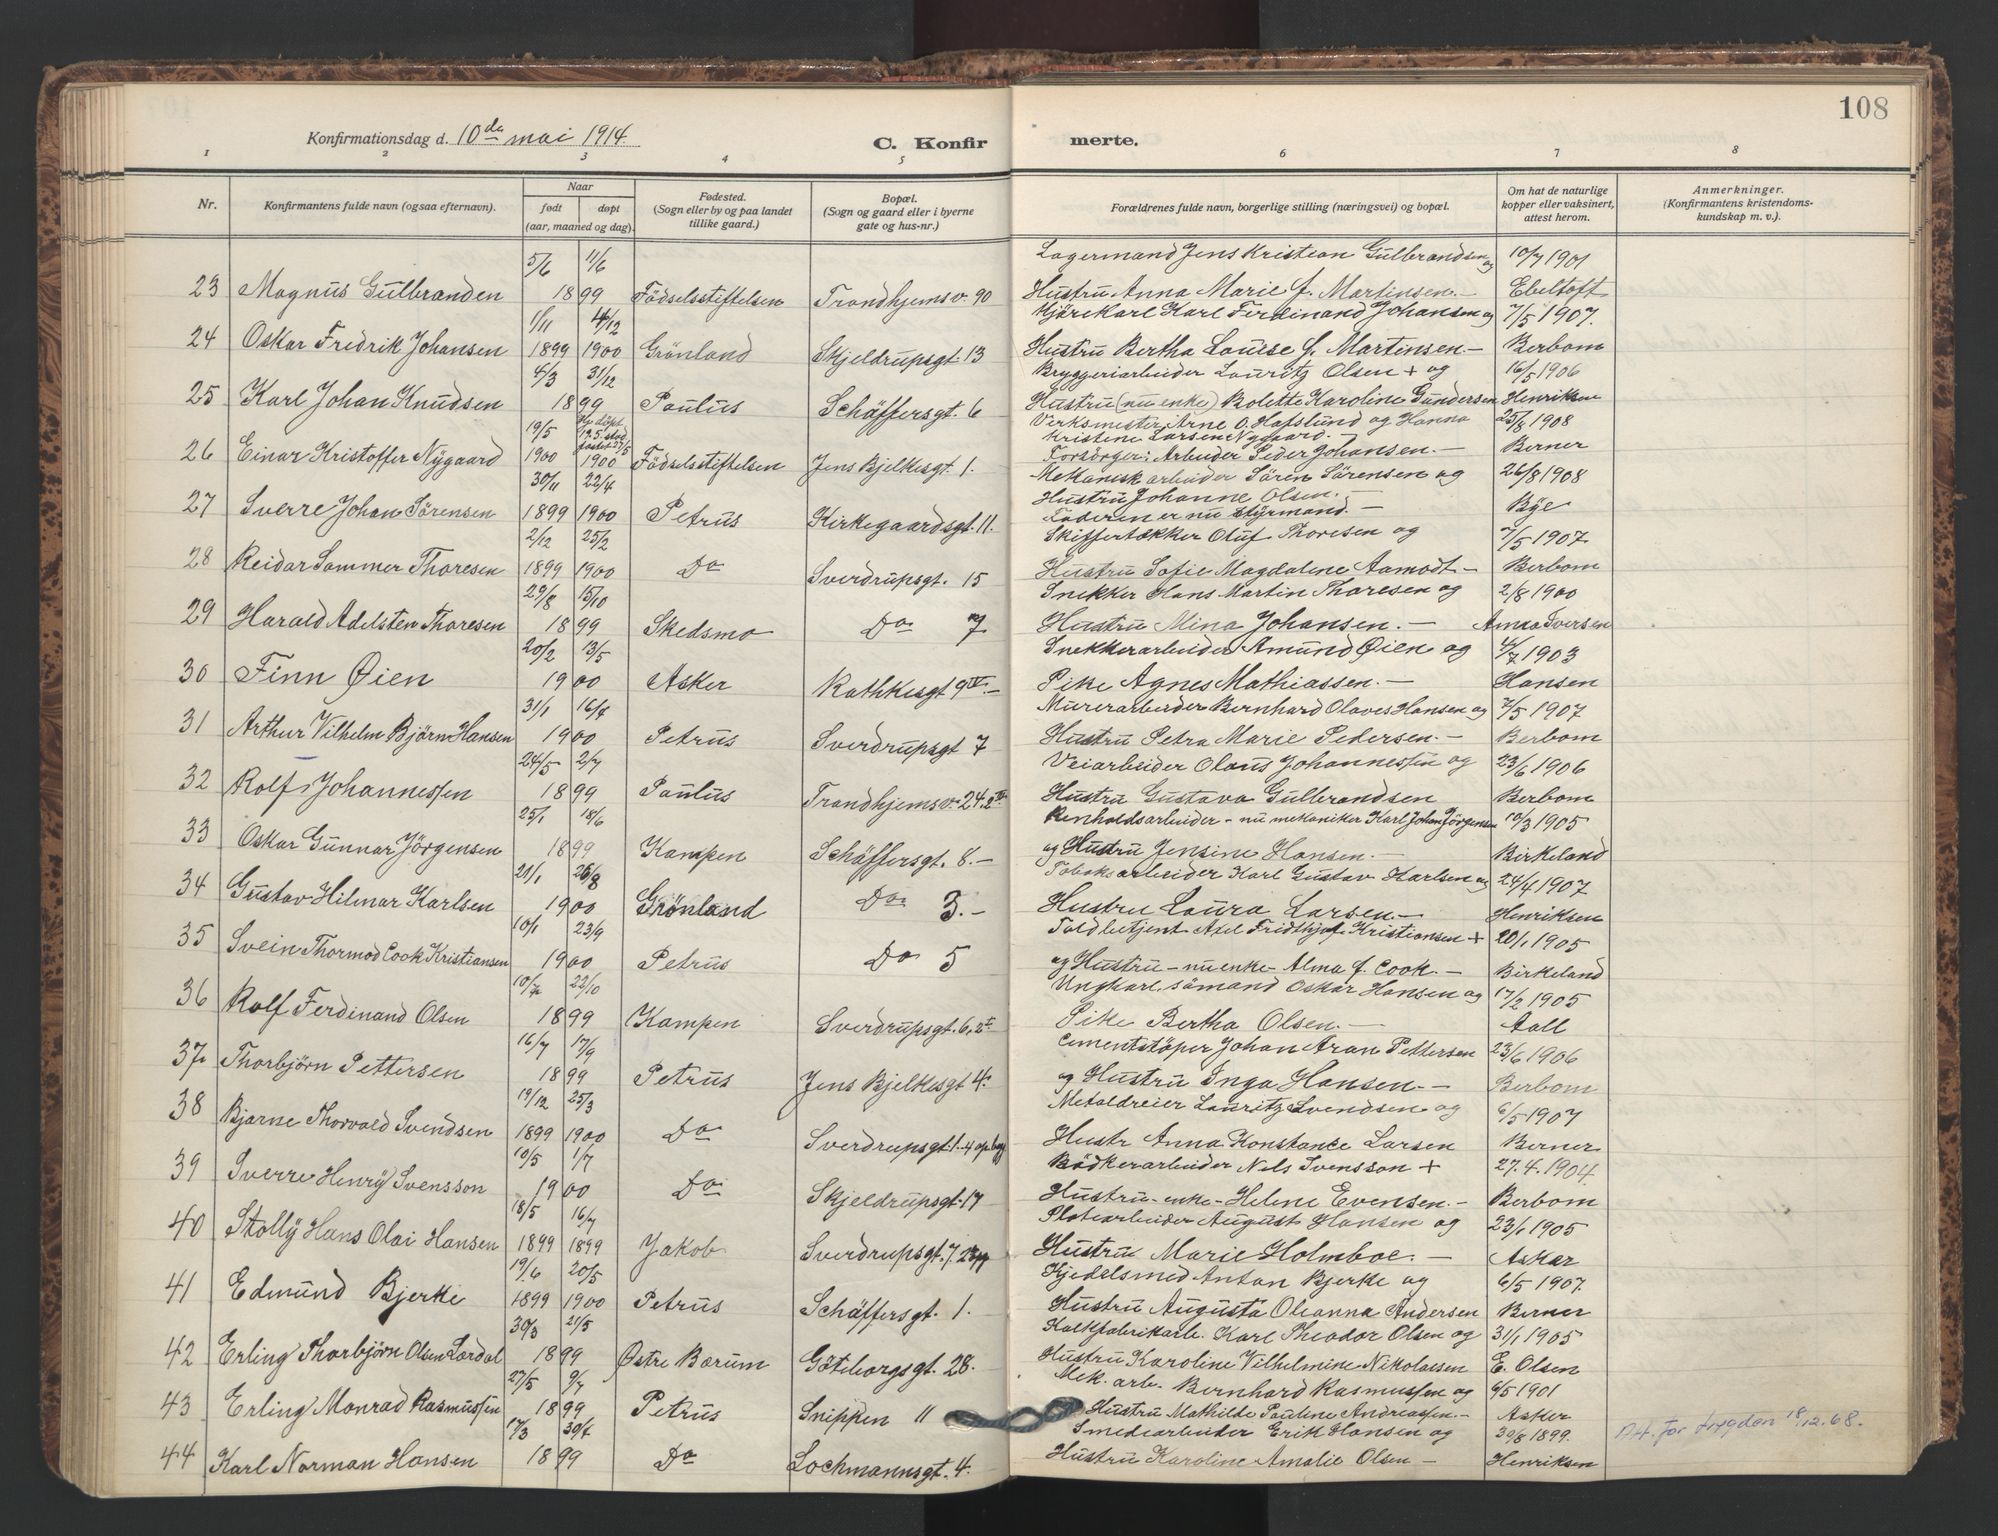 108
Konfirmationsdag d. 10de mai 1914.
C. Konfirmerte.
1 2 3 4 5 6 7 8
Nr.
Konfirmantens fulde navn (ogsaa efternavn).
Naar
født døpt
(aar, maaned og dag).
Fødested.
(Sogn eller by og paa landet
tillike gaard.)
Bopæl.
(Sogn og gaard eller i byerne
gate og hus-nr.)
Forældrenes fulde navn, borgerlige stilling (næringsvei) og bopæl.
Om hat de naturlige
kopper eller vaksinert,
attest herom.
Anmerkninger.
(Konfirmantens kristendoms-
kundskap m. v.).
5/6 11/6 Lagermand Jens Kristian Gulbrandsen og 10/7 1901
23 Magnus Gulbranden 1899 Födselsstiftelsen Trondhjemsv. 90 Hustru Anna Marie f. Martinsen.- Ebeltoft
1/11 4/12 Kjörekarl Karl Ferdinand Johansen og 7/5 1907.
24 Oskar Fredrik Johansen 1899 1900 Grönland Skjeldrupsgt. 13 Hustru Bertha Louise f. Martensen.- Berbom
4/3 31/12 Bryggeriarbeider Lauritz Olsen + og 16/5 1906
25 Karl Johan Knudsen 1899 Paulus Schäffersgt. 6 Hustru (nu enke) Bolette Karoline Gundersen Henriksen
19/5 Hj. döpt 19.5. stadfæstet 27/5 Verksmester Arne O. Hafslund og Hanna 25/8 1908
Kristine Larsen Nygaard.-
26 Einar Kristoffer Nygaard 1900 1900 Födselsstiftelsen Jens Bjelkesgt. 1. Forsörger: Arbeider Peder Johansen.- Berner
30/11 22/4 Mekanisk arbeider Sören Sörensen og 26/8 1908
Hustru Johanne Olsen.-
27 Sverre Johan Sörensen 1899 1900 Petrus Kirkegaardsgt. 11. Faderen er nu styrmand.- Bye
2/12 25/2 Skiffertækker Oluf Thoresen og 7/5 1907
28 Reidar Sommer Thoresen 1899 1900 Do Sverdrupsgt. 15 Hustru Sofie Magdalene Aamodt- Berbom
29/8 15/10 Snekker Hans Martin Thoresen og 2/8 1900
29 Harald Adelsten Thoresen 1899 Skedsmo Do 7 Hustru Mina Johansen.- Anna Iversen
20/2 13/5 Snekkerarbeider Amund Øien og 4/7 1903
30 Finn Øien 1900 Asker Rathkesgt 9 IV.- Pike Agnes Mathiassen.- Hansen
31/1 16/4 Murerarbeider Bernhard Olaves Hansen og 7/5 1907
31 Arthur Vilhelm Björn Hansen 1900 Petrus Sverdrupsgt 7 Hustru Petra Marie Pedersen.- Berbom
24/5 2/7 Veiarbeider Olaus Johannessen og 23/6 1906
32 Rolf Johannessen 1899 Paulus Trondhjemsv. 24. 2 Hustru Gustava Gulbrandsen Berbom
25/1 18/6 Renholdsarbeider - nu mekaniker Karl Johan Jörgensen 10/3 1905
33 Oskar Gunnar Jörgensen 1899 Kampen Schäffersgt. 8.- og Hustru Jensine Hansen.- Birkeland
21/1 26/8 Tobaksarbeider Karl Gustav Karlsen og 24/4 1907
34 Gustav Hilmar Karlsen 1900 Grönland Do 3.- Hustru Laura Larsen.- Henriksen
10/1 23/9 Toldbetjent Axel Fridthjof Kristiansen + 20/1 1905
35 Svein Thormod Cook Kristiansen 1900 Petrus Do 5 og Hustru - nu enke - Alma f. Cook.- Birkeland
10/7 22/10 Ungkarl, sömand Oskar Hansen og 17/2 1905
36 Rolf Ferdinand Olsen 1899 Kampen Sverdrupsgt. 6, 2 Pike Bertha Olsen.- Aall
16/7 17/9 Cementstöper Johan Aron Pettersen 23/6 1906
37 Thorbjörn Pettersen 1899 Petrus Jens Bjelkesgt 4. og Hustru Inga Hansen.- Berbom
19/12 25/3 Metaldreier Lauritz Svendsen og 6/5 1907
38 Bjarne Thorvald Svendsen 1899 1900 Do Sverdrupsgt. 1. 4 Hustr Anna Konstanse Larsen Berner
10/5 1/7 Bödkerarbeider Nels Svensson + 27. 4. 1904
39 Sverre Henry Svensson 1900 Do Skjeldrupsgt. 17 Hustru - enke - Helene Evensen.- Berbom
18/5 16/7 Platearbeider August Hansen og 23/1 1905
40 Stolly Hans Olai Hansen 1899 1899 Jakob Sverdrupsgt. 7. Hustru Marie Holmboe.- Asker
19/6 20/5 Kjedelsmed Anton Bjerke og 6/5 1907.
41 Edmund Bjerke 1899 1900 Petrus Schäffersgt. 1. Hustru Augusta Oleanna Andersen Berner
30/3 21/5 Kalkfabrikarb. Karl Theodor Olsen og 31/1 1905
42 Erling Thorbjörn Olsen Lørdal 1899 Østre Bærum Göteborgsgt. 28. Hustru Karoline Vilhelmine Nikolaisen E. Olsen
27/5 9/7 Mek. arb. Bernhard Rasmussen og 6/5 1901
43 Erling Monrad Rasmussen 1899 Petrus Snippen 11 Hustru Mathilde Pauline Andreassen.- Asker
17/3 30/7 Smedearbeider Erik Hansen og 30/8 1899. för trygden 18/12. 68.
44 Karl Norman Hansen 1899 Do Lochmannsgt. 4. Hustru Karoline Amalie Olsen - Henriksen